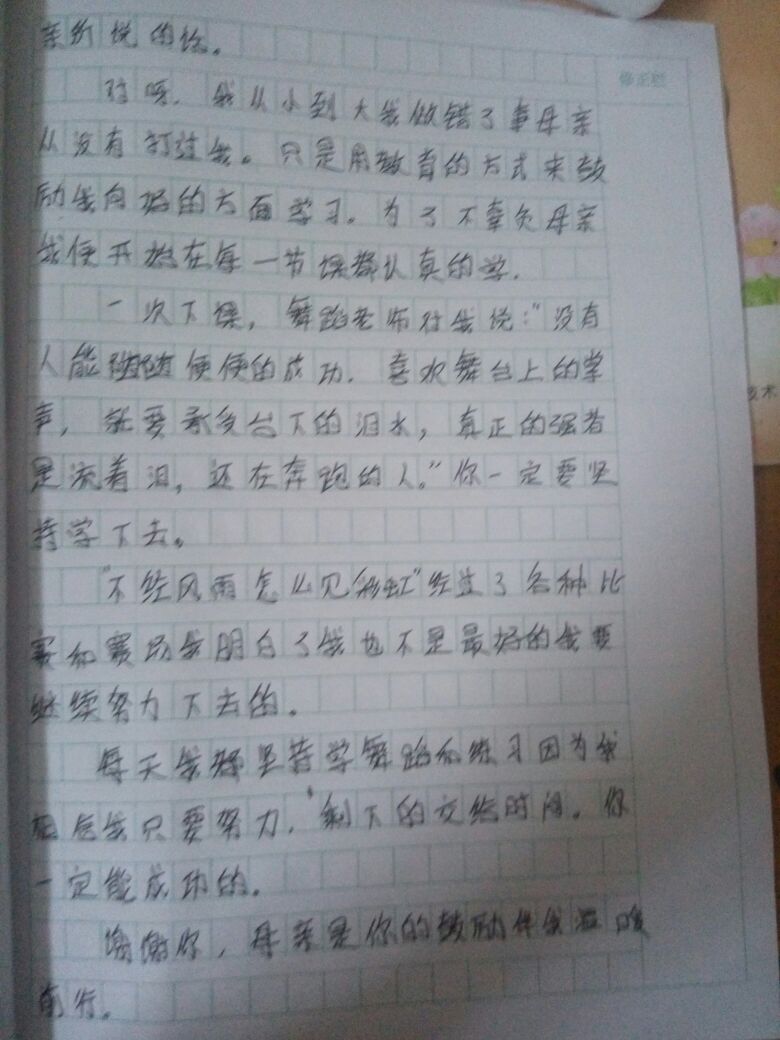 亲所说的话。
对呀，我从小到大我做错了事母亲
从没有打过我。只是用教育的方式来鼓
励我向好的方面学习。为了不辜负母亲
我便开始在每一节课都认真的学，
一次下课，舞蹈老师对我说："没有
人能随随便便的成功，喜欢舞台上的掌
声，就要承受台下的泪水，真正的强者
是流着泪，还在奔跑的人。"你一定要坚
持学下去。
"不经风雨怎么见彩虹"经过了各种比
赛和赛场我明白了我也不是最好的我要
继续努力下去的。
每天我都坚持学舞蹈和练习因为我
相信我只要努力，剩下的交给时间。你
一定能成功的。
谢谢你，母亲是你的鼓励伴我温暖
前行。
修正栏
技术